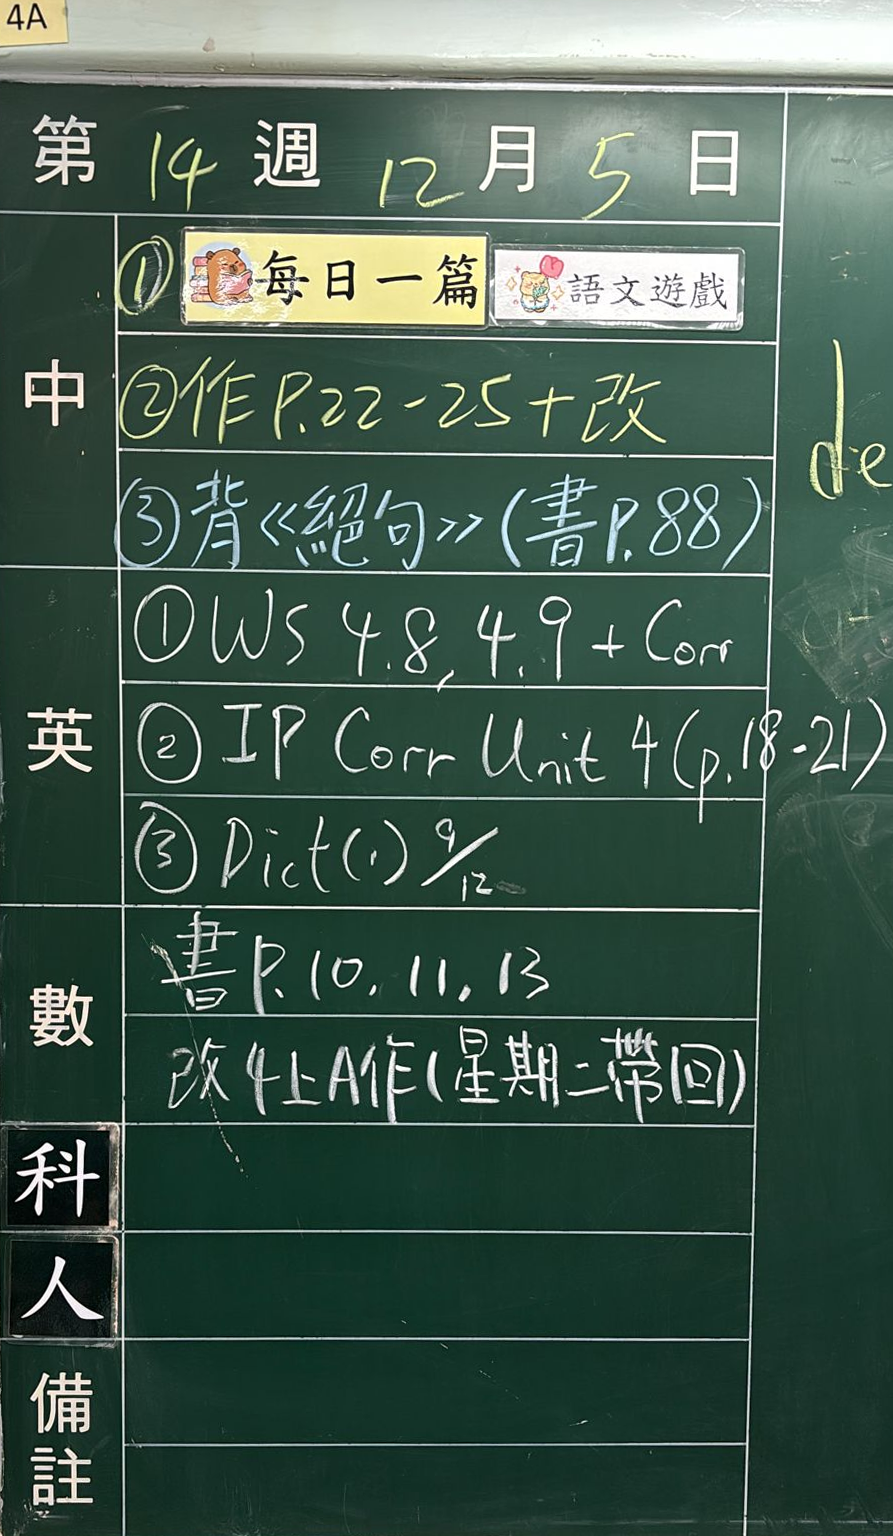 4A
第 14 週 12 月 5 日
中
① 每日一篇 語文遊戲
② 作 P.22-25 + 改
③ 背《絕句》(書P.88)
英
① WS 4.8, 4.9 + Corr
② IP Corr Unit 4 (p.18-21)
③ Dict(1) 9/12
數
書 P.10, 11, 13
改 4上A作(星期二帶回)
科
人
備註
de